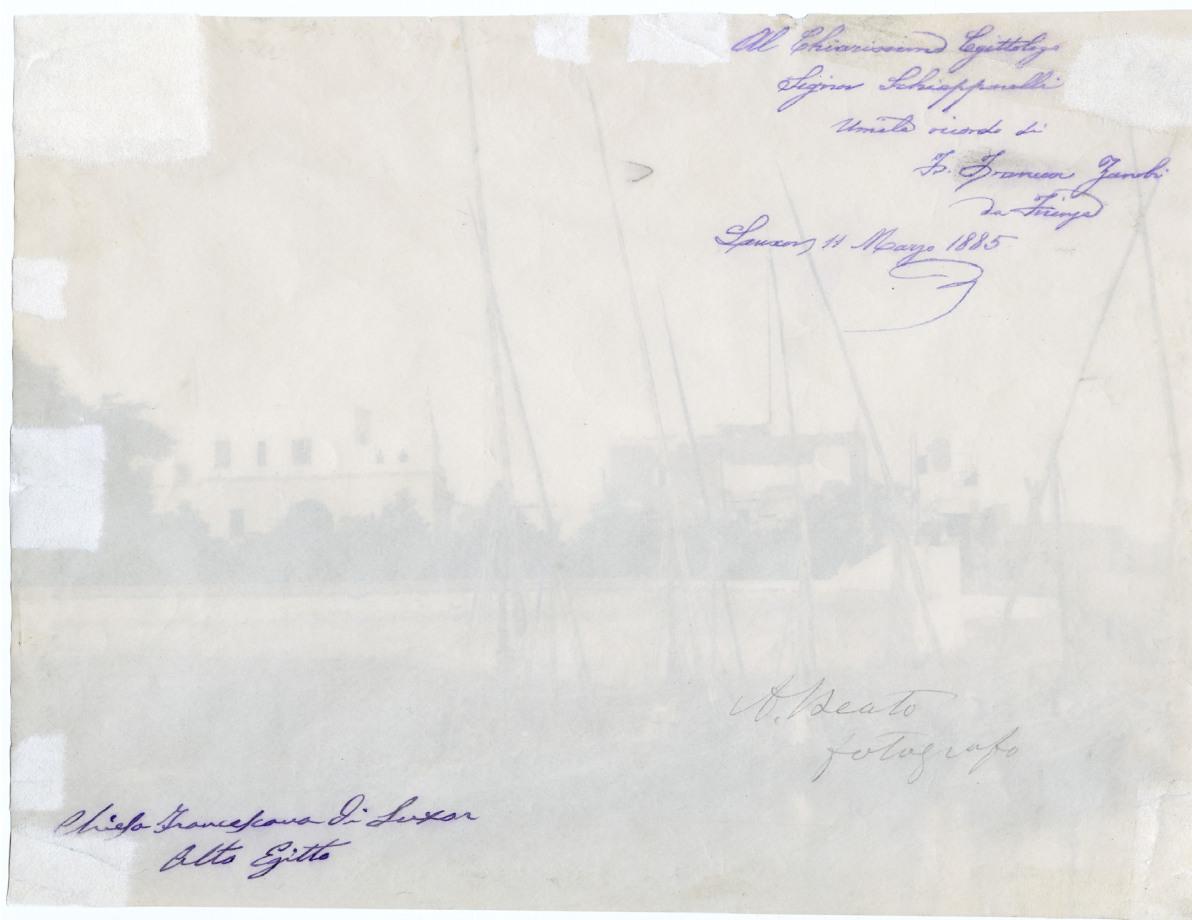 Al Chiarissimo Egittologo
Signor Schiapparelli
Umile ricordo di
F. Zanobi
da Firenze
Luxor, 11 Marzo 1885
A. Beato
fotografo
Chiesa Francescana di Luxor
Alto Egitto